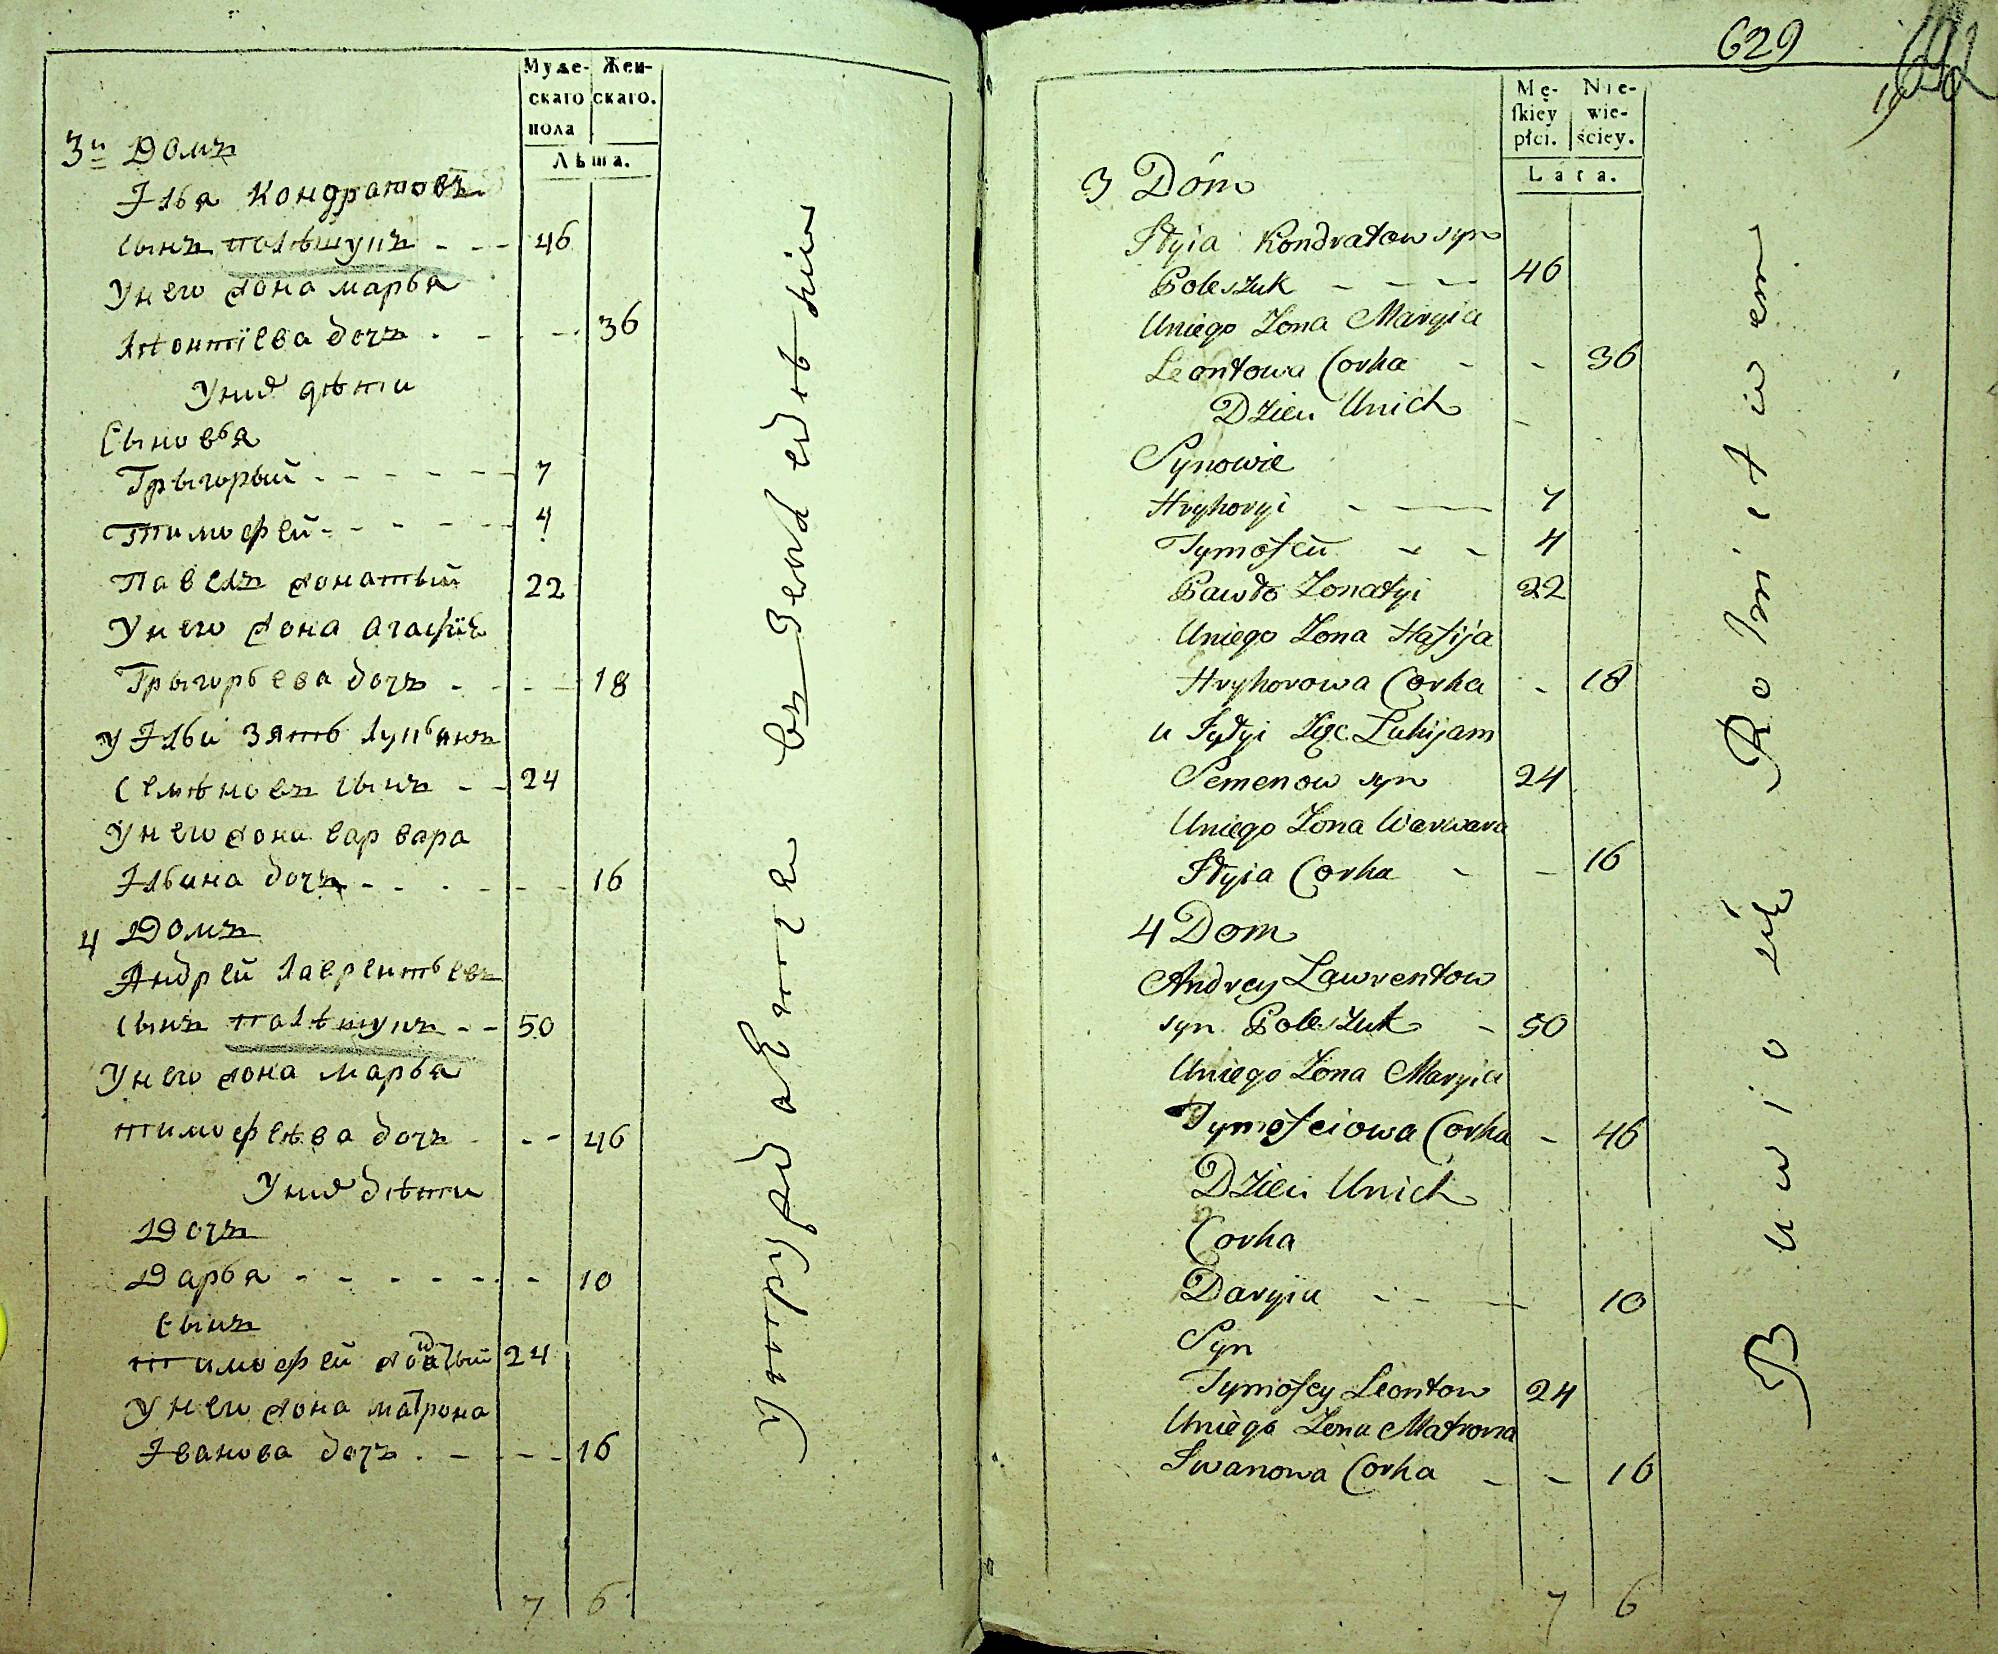 Муже- Жен-
скаго скаго.
пола
Лѣта.
3й Домъ
Илья Кондратовъ
сынъ полѣшукъ - - - 46
У него жона марья
лѣонтіева дочь . - - - 36
У них дѣти
Сыновья
Грыгорый - - - - - 7
Тимофей - - - - - 4
Павелъ жонатый 22
У него жона агафія
Грыгорьева дочъ . - - - 18
у Ильи зять лукьянъ
Семѣновъ сынъ - - 24
У него жона варвара
Ильина дочъ - - - - - 16
4 Домъ
Андрей лаврентьевъ
сынъ полѣшукъ - - 50
У него жона марья
тимофѣева дочъ - - - 46
У них дѣти
Дочъ
Дарья - - - - - - 10
Сынъ
тимофей жонатый 24
У него жона матрона
Иванова дочъ . - - - 16
7 6
въ земледѣліи
629
Mę- Nie-
ſkiey wie-
płci. ściey.
Lata.
3 Dóm
Jłyia Kondratow syn
Poleszuk - - - - 46
Uniego Zona Maryia
Leontowa Corka - - 36
Dzieci Unich
Synowie
Hryhoryi - - - 7
Tymofeii - - 4
Pawło Zonatyi 22
Uniego Zona Hafija
Hryhorowa Corka - 18
u Jłyi Zięc Łukijam
Semenow syn 24
Uniego Zona Warwara
Jłyia Corka - - 16
4 Dom
Andrey Lawrentow
syn Poleszuk - 50
Uniego Zona Maryia
Tymofeiowa Corka - 46
Dzieci Unich
Corka
Daryia - - - 10
Syn
Tymofey Leontow 24
Uniego Zona Matrona
Iwanowa Corka - - 16
7 6
Rolnictwem